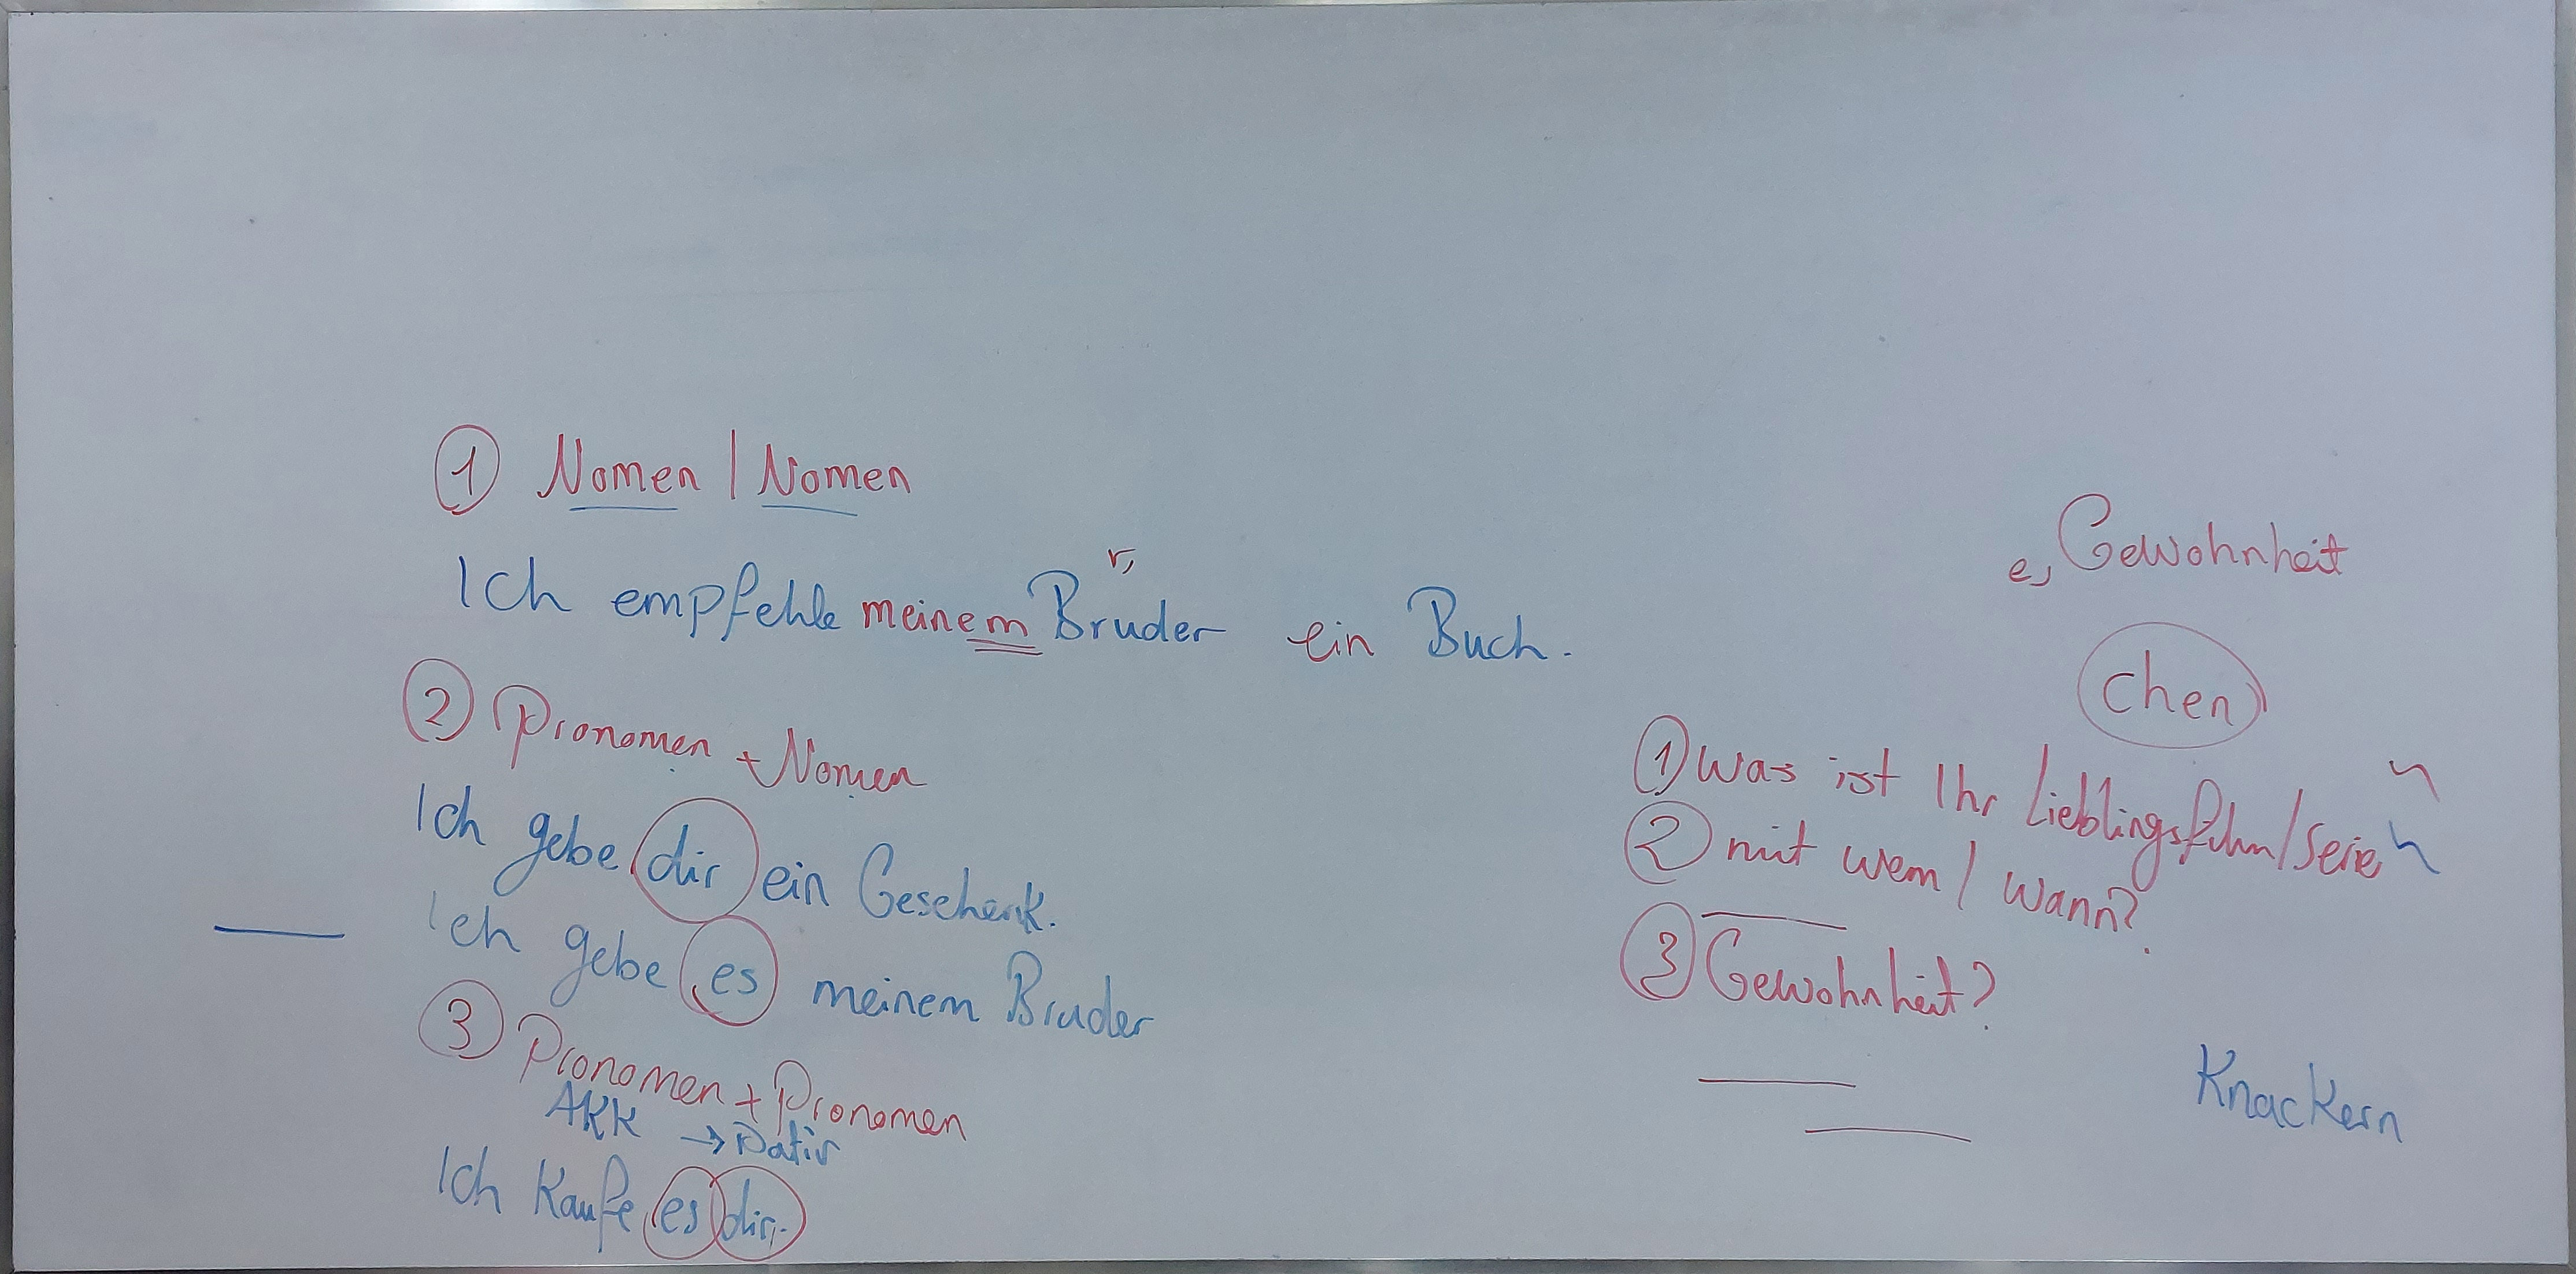 ① Nomen | Nomen
r,
Ich empfehle meinem Bruder ein Buch.
② Pronomen + Nomen
Ich gebe dir ein Geschenk.
Ich gebe es meinem Bruder
③ Pronomen + Pronomen
AKK → Dativ
Ich Kaufe es dir.
e, Gewohnheit
chen
① Was ist Ihr Lieblingsfilm/Serie
② mit wem / wann?
③ Gewohnheit?
Knackern